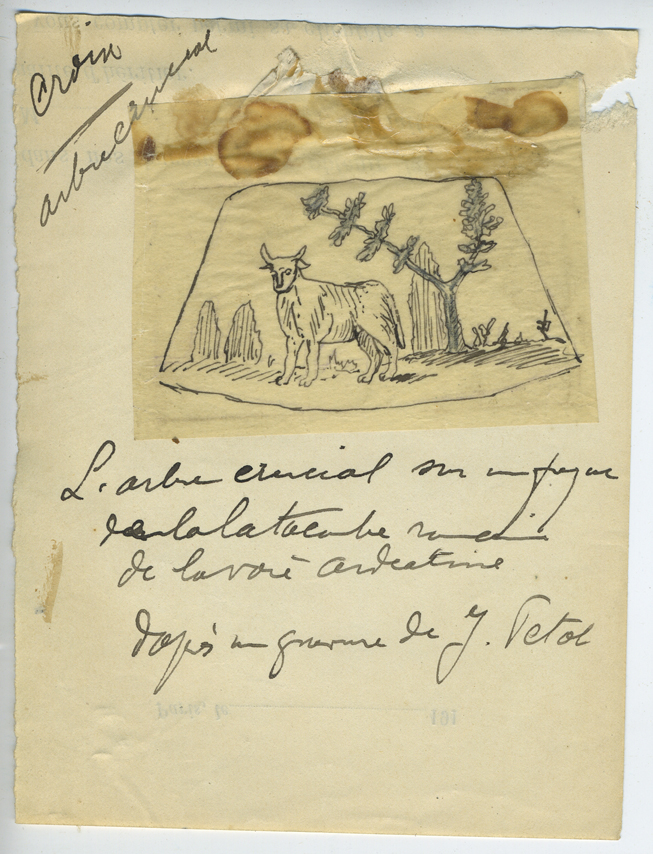 Croix
arbre crucial
L'arbre crucial sur un fresque
de la Catacombe romaine
de la voie ardeatine
d'après un gravure de J.